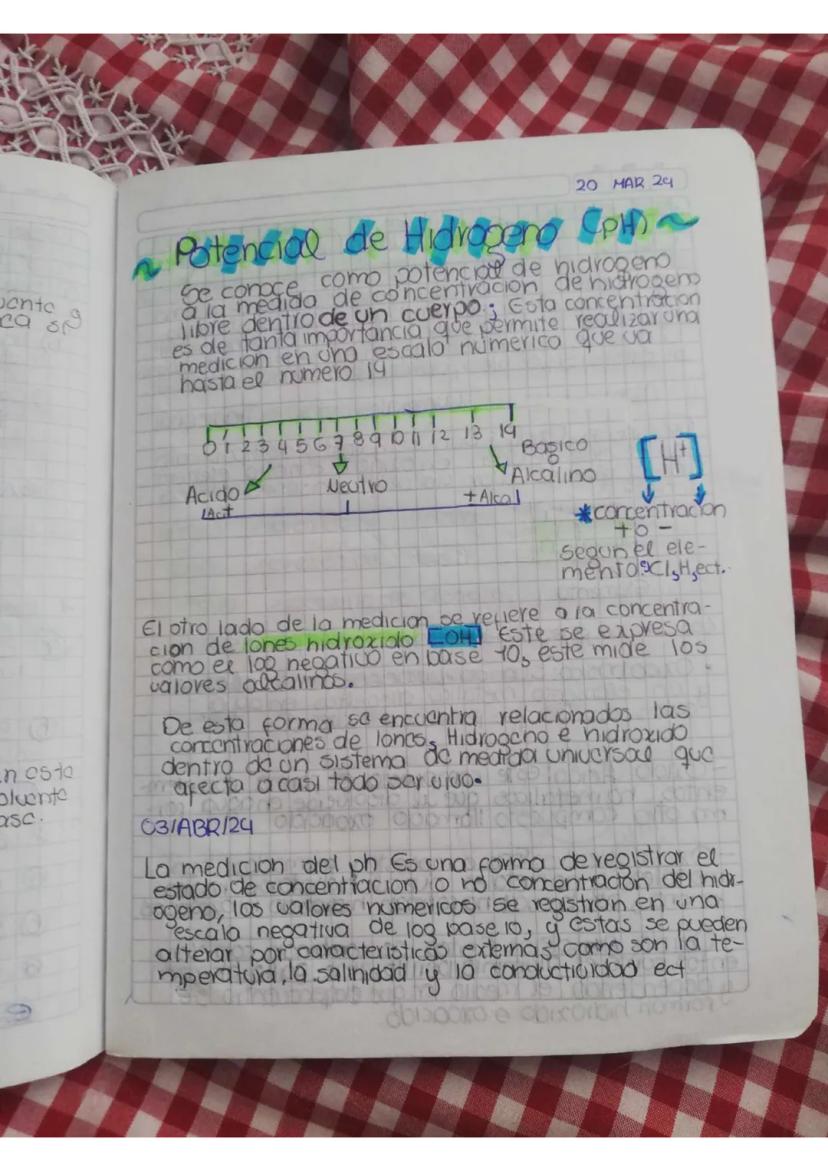 20 MAR 24
~ Potencial de Hidrogeno (pH) ~
Se conoce como potencial de hidrogeno
a la medida de concentracion de hidrogeno
libre dentro de un cuerpo; Esta concentracion
es de tanta importancia que permite realizar una
medicion en una escala numerico que va
hasta el numero 14
0 1 2 3 4 5 6 7 8 9 10 11 12 13 14
Acido
Neutro
Basico
o
Alcalino
|Act
+Alca|
[H+]
*concentracion
+ o -
segun el ele-
mento: Cl, H, ect.
El otro lado de la medicion se refiere a la concentra-
cion de Iones hidroxido [OH] Este se expresa
como el log negativo en base 10, este mide los
valores alcalinos.
De esta forma se encuentra relacionados las
concentraciones de Iones, Hidrogeno e hidroxido
dentro de un sistema de medida universal que
afecta a casi todo ser vivo.
03/ABR/24
La medicion del ph Es una forma de registrar el
estado de concentracion o no concentracion del hidr-
ogeno, los valores numericos se registran en una
escala negativa de log base 10, y estas se pueden
alterar por caracteristicas externas como son la te-
mperatura, la salinidad y la conductividad ect
n esta
olvente
asc.